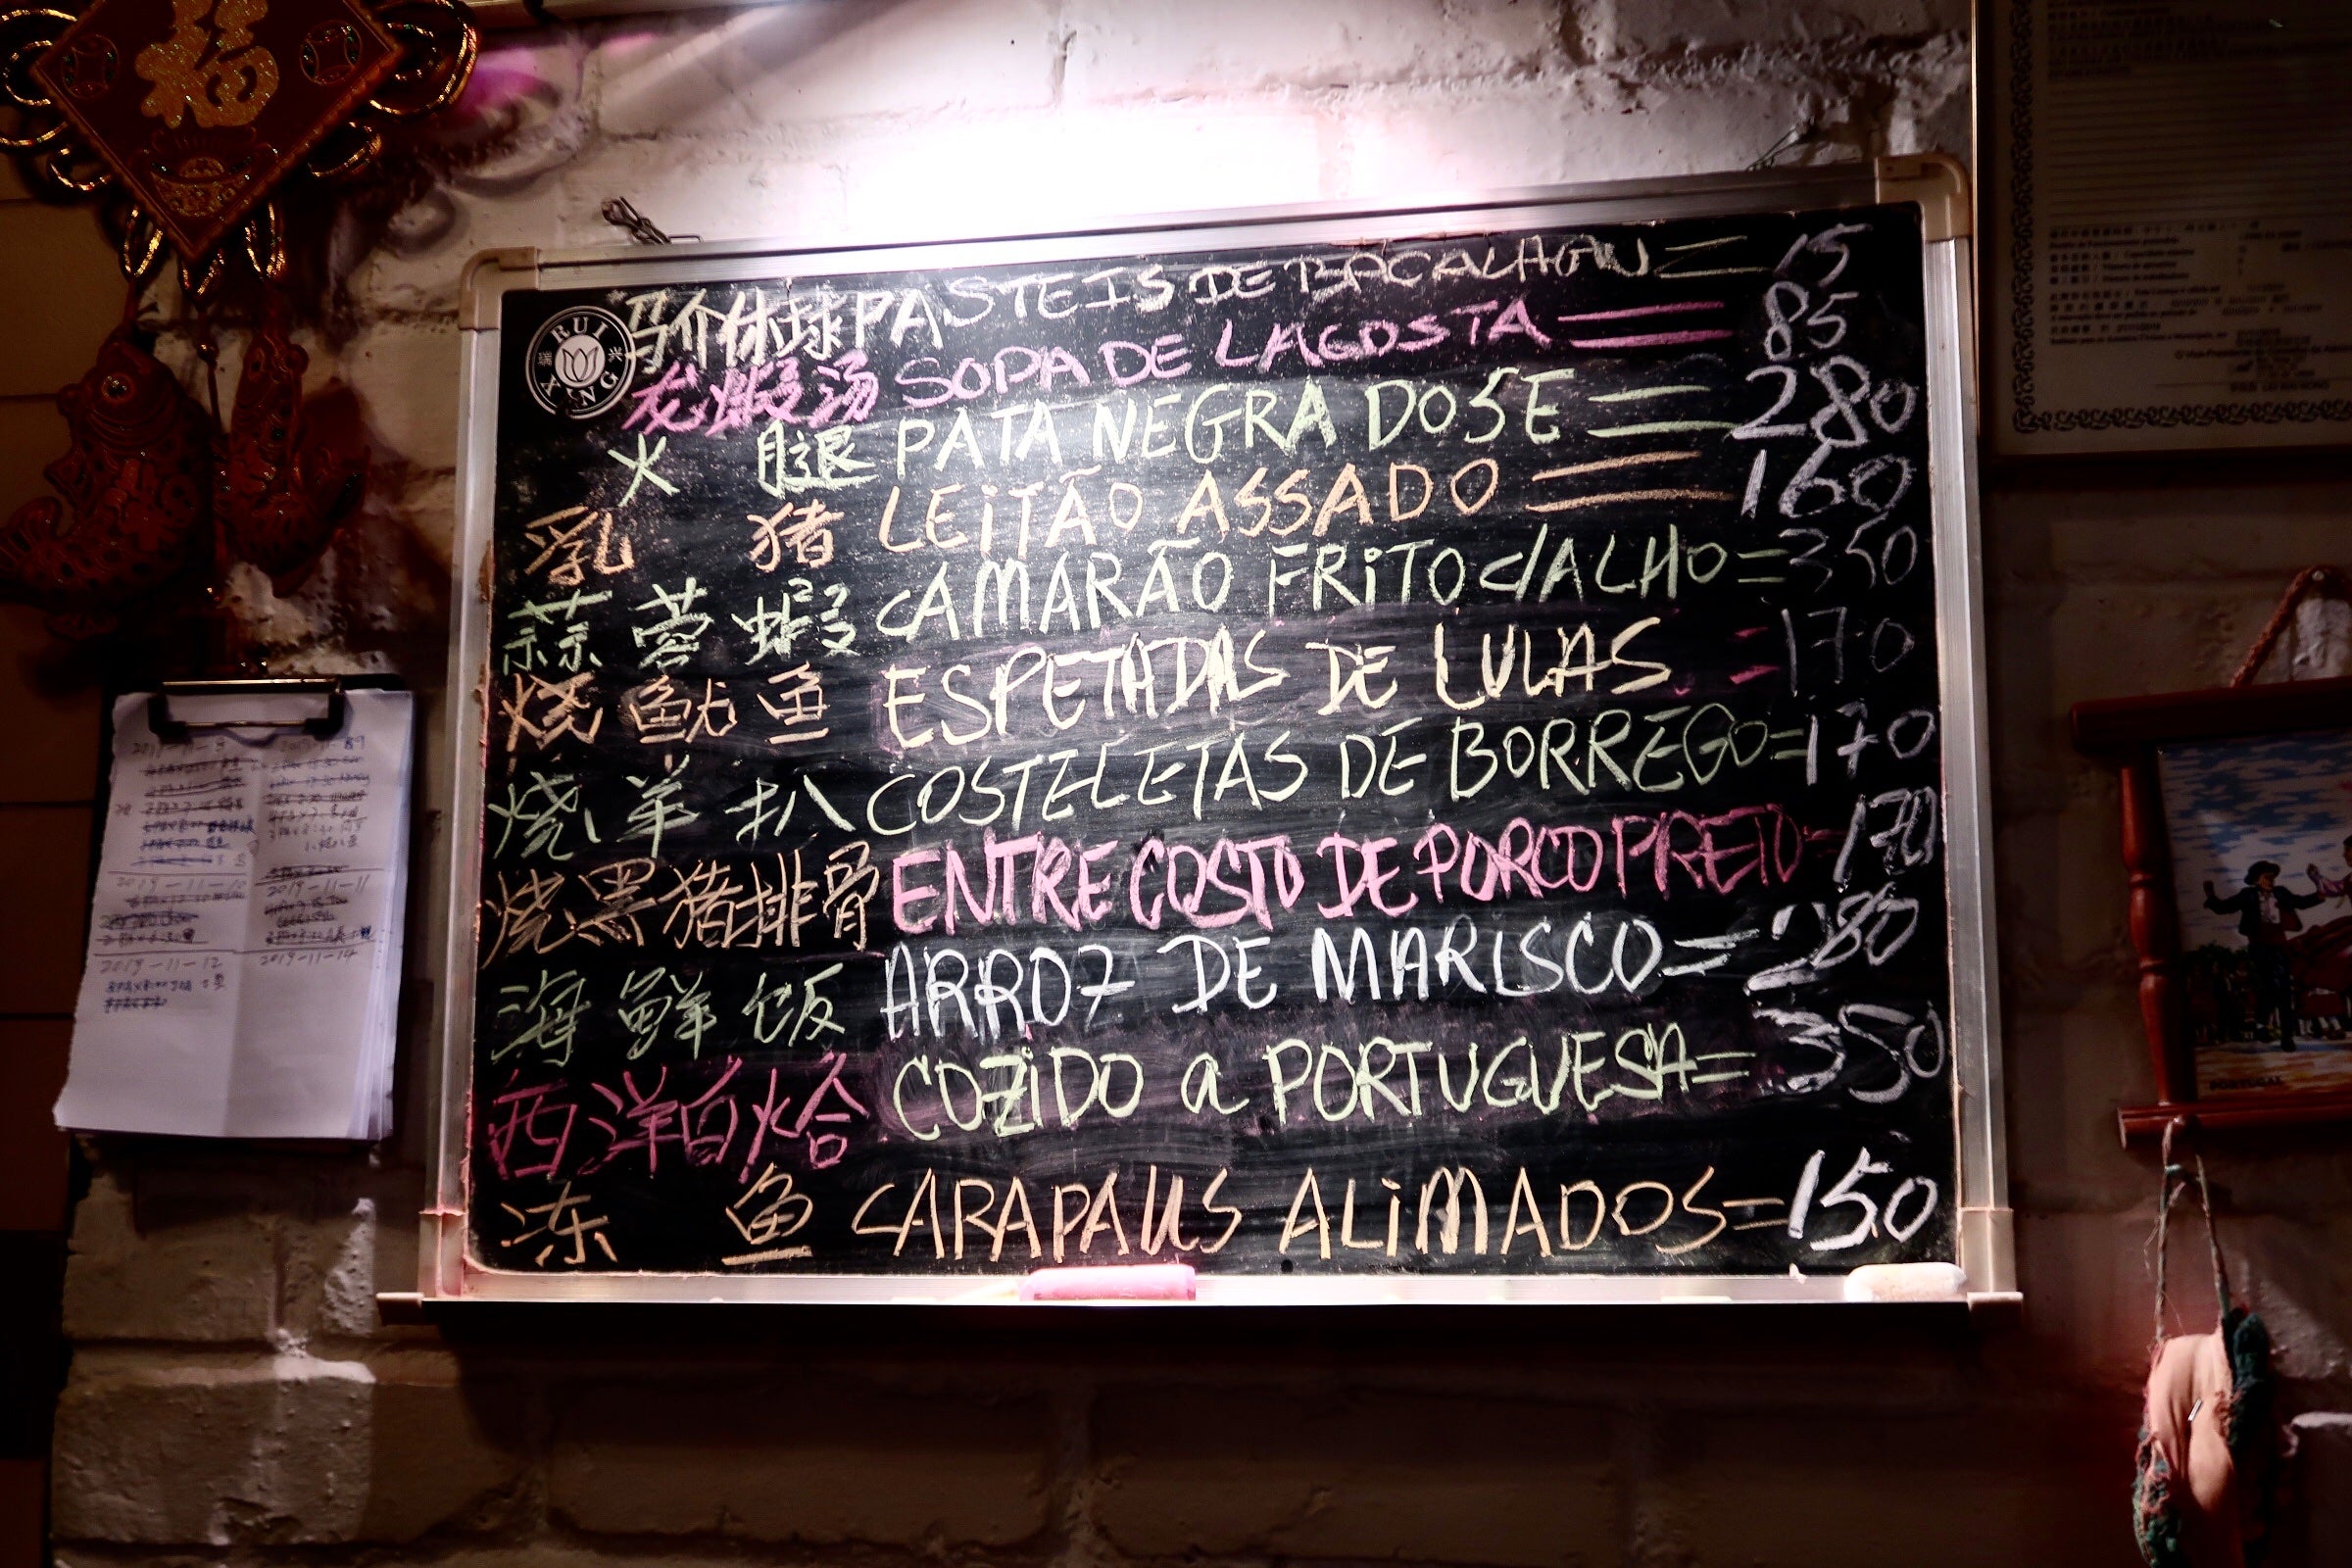 福
RUI XING
瑞兴
马介休球 PASTEIS DE BACALHAU = 15
龙蝦汤 SOPA DE LAGOSTA = 85
火腿 PATA NEGRA DOSE = 280
乳猪 LEITÃO ASSADO = 160
蒜蓉蝦 CAMARÃO FRITO C/ALHO = 350
烧鱿鱼 ESPETADAS DE LULAS = 170
烧羊扒 COSTELETAS DE BORREGO = 170
烧黑猪排骨 ENTRECOSTO DE PORCO PRETO - 170
海鲜饭 ARROZ DE MARISCO = 280
西洋白烩 COZIDO a PORTUGUESA = 350
冻鱼 CARAPAUS ALIMADOS = 150
2019-11-10 2019-11-11
2019-11-12 2019-11-14
PORTUGAL